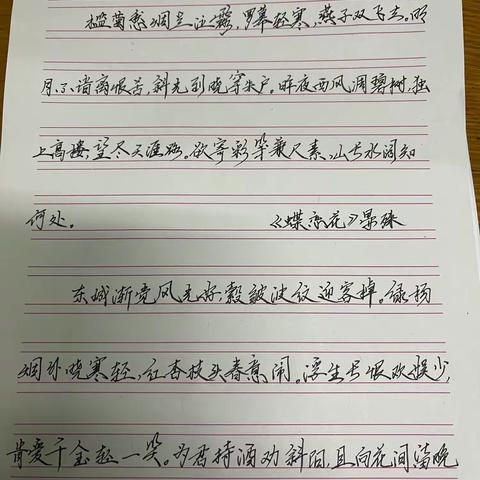 槛菊愁烟兰泣露,罗幕轻寒,燕子双飞去。明
月不谙离恨苦,斜光到晓穿朱户。昨夜西风凋碧树,独
上高楼,望尽天涯路。欲寄彩笺兼尺素,山长水阔知
何处。 《蝶恋花》晏殊
东城渐觉风光好,縠皱波纹迎客棹。绿杨
烟外晓寒轻,红杏枝头春意闹。浮生长恨欢娱少,
肯爱千金轻一笑。为君持酒劝斜阳,且向花间留晚